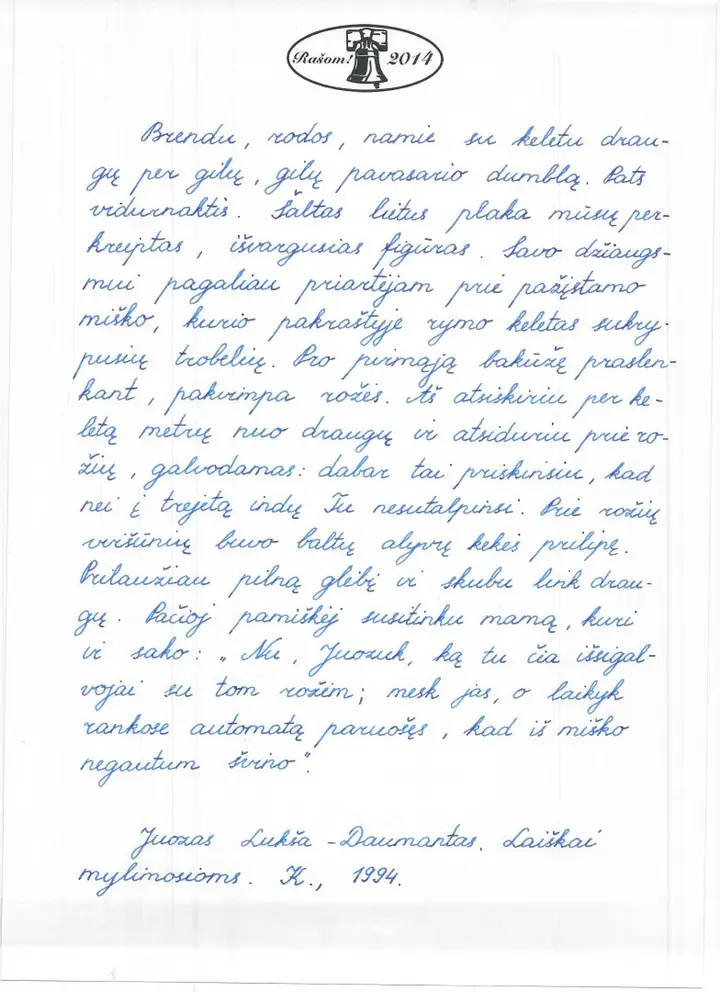 Rašom! 2014
Brendu, rodos, namie su keletu drau-
gų per gilų, gilų pavasario dumblą. Pats
vidurnaktis. Šaltas lietus plaka mūsų per-
kreiptas, išvargusias figūras. Savo džiaugs-
mui pagaliau priartėjam prie pažįstamo
miško, kurio pakraštyje rymo keletas sukry-
pusių trobelių. Pro pirmąją bakūžę praslen-
kant, pakvimpa rožės. Aš atsiskiriu per ke-
letą metrų nuo draugų ir atsiduriu prie ro-
žių, galvodamas: dabar tai priskinsiu, kad
nei į trejetą indų Tu nesutalpinsi. Prie rožių
viršūnių buvo baltų alyvų kekės prilipę.
Prilaužiau pilną glėbį ir skubu link drau-
gų. Pačioj pamiškėj susitinku mamą, kuri
ir sako: „Nu, Juozuk, ką tu čia išsigal-
vojai su tom rožėm; mesk jas, o laikyk
rankose automatą paruošęs, kad iš miško
negautum švino".
Juozas Lukša-Daumantas. Laiškai
mylimosioms. K., 1994.